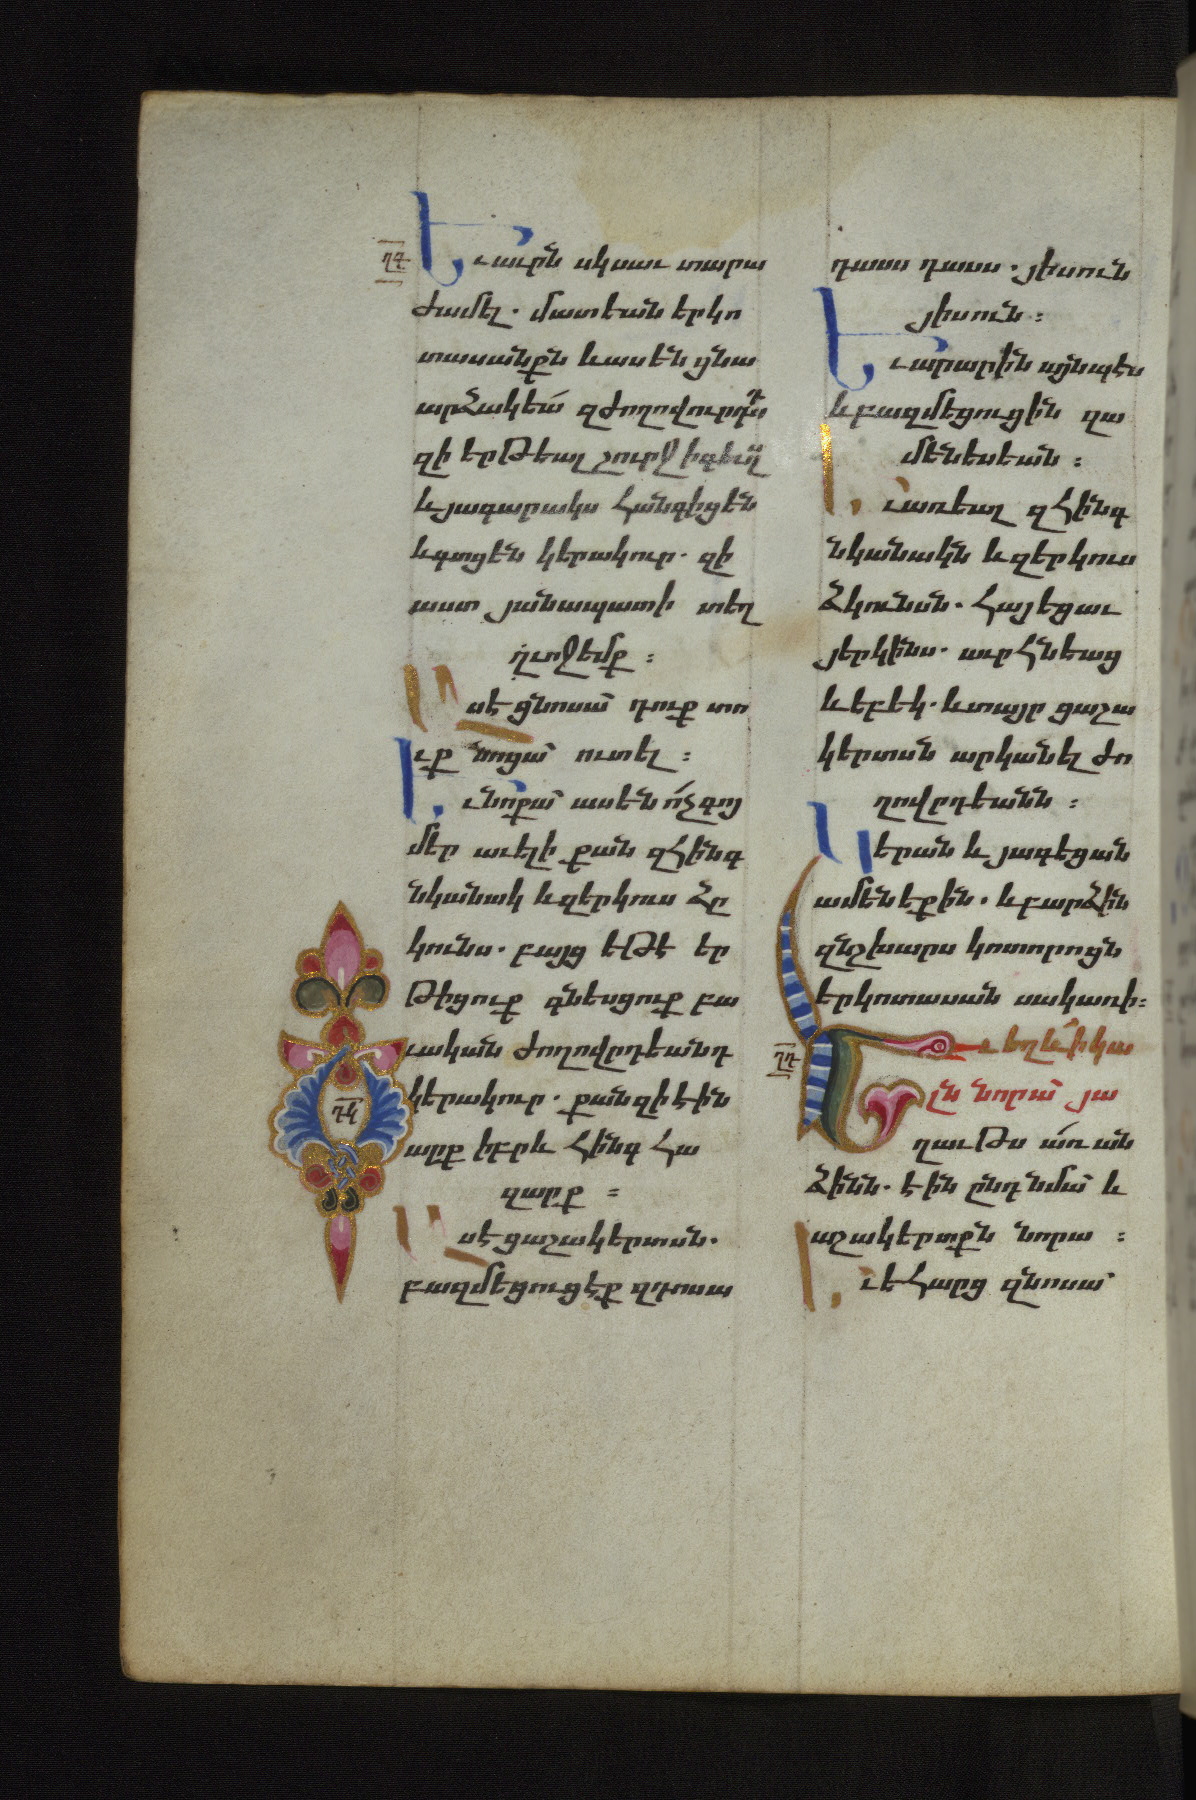 ՂԳ
Եւ աւրն սկսաւ տարա
ժամել. մատեան երկո
տասանքն և ասեն ցնա
արձակեա՛ զժողովուրդս
զի երթեալ շուրջ ի գեւղս
և յագարակս հանգիցեն
և գտցեն կերակուր. զի
աստ յանապատի տեղ
ղւոջ եմք :
Ասէ ցնոսա՝ դուք տո
ւք նոցա՝ ուտել :
Եւ նոքա՝ ասեն ո՛չ գոյ
մեր աւելի քան զհինգ
նկանակ և զերկուս ձը
կունս. բայց եթէ եր
թիցուք գնեսցուք բա
ւական ժողովըդեանդ
կերակուր. քանզի էին
արք իբրև հինգ հա
զարք :
Ասէ ցաշակերտսն.
բազմեցուցէք զդոսա
դասս դասս. յիսուն
յիսուն :
Եւ արարին այնպէս
և բազմեցուցին զա
մենեսեան :
Եւ առեալ զհինգ
նկանակն և զերկուս
ձկունսն. հայեցաւ
յերկինս. աւրհնեաց
և եբեկ. և տայր ցաշա
կերտսն արկանել ժո
ղովըդեանն :
Կերան և յագեցան
ամենեքին. և բարձին
զնշխարս կոտորոցն
երկոտասան սակառի :
ՂԴ
Եւ եղև՛ ի կա
լն նորա՝ յա
ղաւթս ա՛ռ ան
ձինն. էին ընդ նմա՝ և
աշակերտքն նորա :
Եւ եհարց զնոսա՝